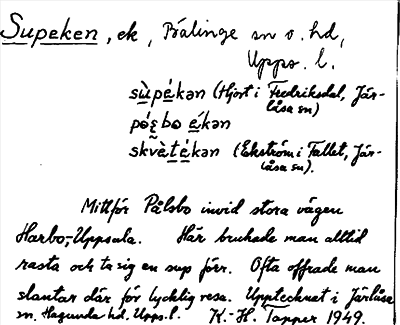 Supeken, ek, Bälinge sn o. hd,
Upps. l.
sùpékən (Hjort i Fredriksdal, Jär-
låsa sn)
ékən
skvètékən (Ekström i Tallet, Jär-
låsa sn).
Mittför Pålsbo invid stora vägen
Harbo-Uppsala. Här brukade man alltid
rasta och ta sig en sup förr. Ofta offrade man
slantar där för lycklig resa. Upptecknat i Järlåsa
sn. Hagunda hd. Upps. l. K.-H. Tapper 1949.